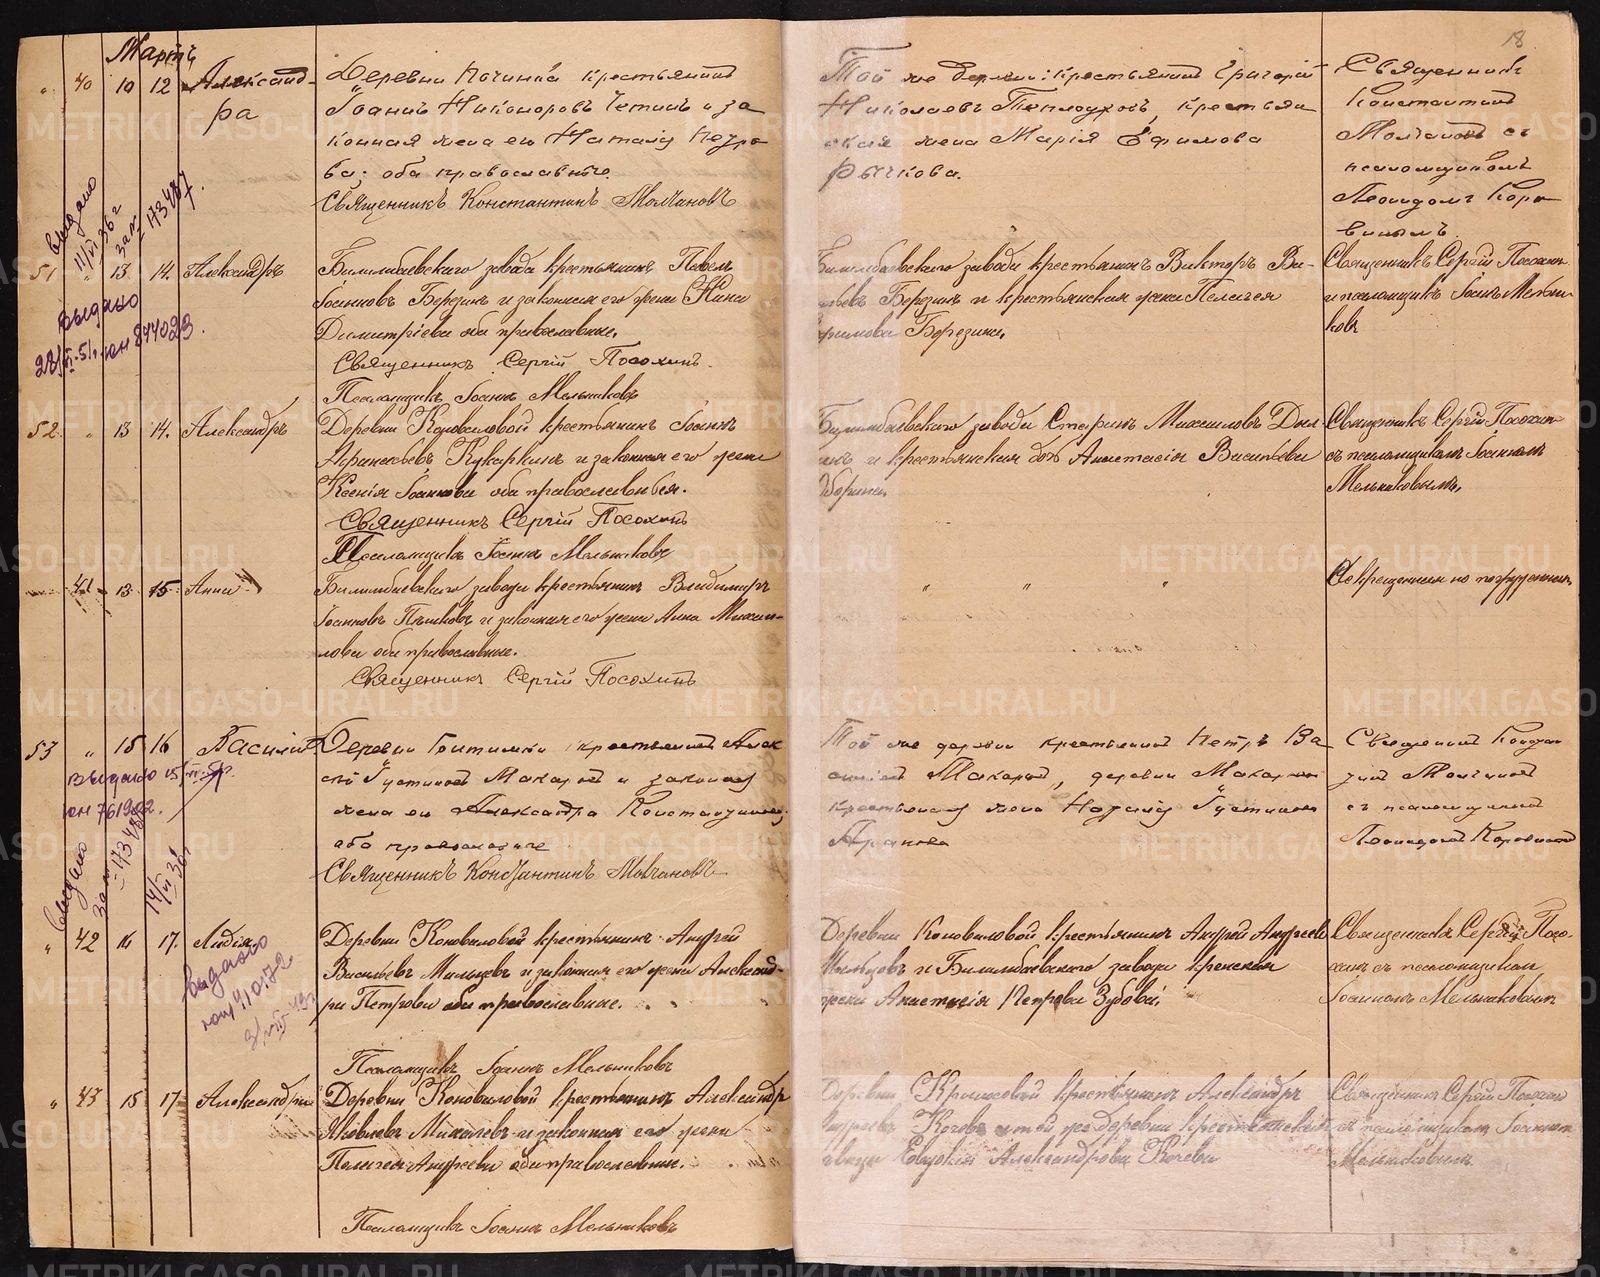 Мартъ
18
„ 40 10 12 Александ-
ра
Деревни Починка крестьянинъ
Іоаннъ Никоноровъ Четинъ и за
конная жена его Наталія Петро
ва; оба православные.
Священникъ Константинъ Молчановъ
Той же деревни: крестьянинъ Григорій
Николаевъ Теплоуховъ, крестьян
ская жена Марія Ефимова
Рычкова.
Священникъ
Константинъ
Молчановъ съ
псаломщикомъ
Леонидомъ Коро
винымъ.
выдано
11/VI 36 г
173487.
51 „ 13 14. Александръ
выдано
844023.
Билимбаевскаго завода крестьянинъ Павелъ
Іоанновъ Березинъ и законная его жена Нина
Димитріева оба православные.
Священникъ Сергій Посохинъ.
Псаломщикъ Іоаннъ Мельниковъ
Билимбаевскаго завода крестьянинъ Викторъ Ва-
Березинъ и крестьянская жена Пелагея
Березина.
Священникъ Сергій Посохин
и псаломщикъ Іоаннъ Мельни-
ковъ
52 „ 13 14. Александръ
Деревни Коноваловой крестьянинъ Іоаннъ
Афанасьевъ Кукаркинъ и законная его жена
Ксенія Іоаннова оба православные.
Священникъ Сергій Посохинъ
Псаломщикъ Іоаннъ Мельниковъ
Билимбаевскаго завода Михаиловъ
и крестьянская дочь Анастасія Васильева
Священникъ Сергій Посохин
съ псаломщикомъ Іоанномъ
Мельниковымъ.
41 13 15 Анна
Билимбаевскаго завода крестьянинъ Владимиръ
Іоанновъ Пьянковъ и законная его жена Анна Михаи-
лова оба православные.
Священникъ Сергій Посохинъ
„ „ „
53 „ 15 16 Василій
выдано 15/
юн 761902.
Деревни крестьянинъ Алек
Макаровъ и законная
жена его Александра Константинова
оба православные
Священникъ Константинъ Молчановъ
Той же деревни крестьянинъ Петръ Ва
Макаровъ, деревни Макаровой
крестьянская жена
Священникъ Констан
тинъ Молчановъ
съ псаломщикомъ
Леонидомъ Коровинымъ
выдано
„ 42 16 17. Лидія
выдано
410172
Деревни Коноваловой крестьянинъ Андрей
Васильевъ Мальцевъ и законная его жена Александ-
ра Петрова оба православные.
Псаломщикъ Іоаннъ Мельниковъ
Деревни Коноваловой крестьянинъ Андрей Андреевъ
Мальцовъ и Билимбаевскаго завода
жена Анастасія Петрова Зубова.
Священникъ Сергій Посо-
хинъ съ псаломщикомъ
Іоанномъ Мельниковымъ
„ 43 15 17 Александра
Деревни Коноваловой крестьянинъ Александръ
Яковлевъ Михалевъ и законная его жена
Пелагея Андреева оба православные.
Псаломщикъ Іоаннъ Мельниковъ
Деревни крестьянинъ Александръ
Кочевъ и той же деревни крестьянская
Евдокія Александрова Кочева
Священникъ Сергій Посохин
и псаломщикомъ Іоанномъ
Мельниковымъ
METRIKI.GASO-URAL.RU